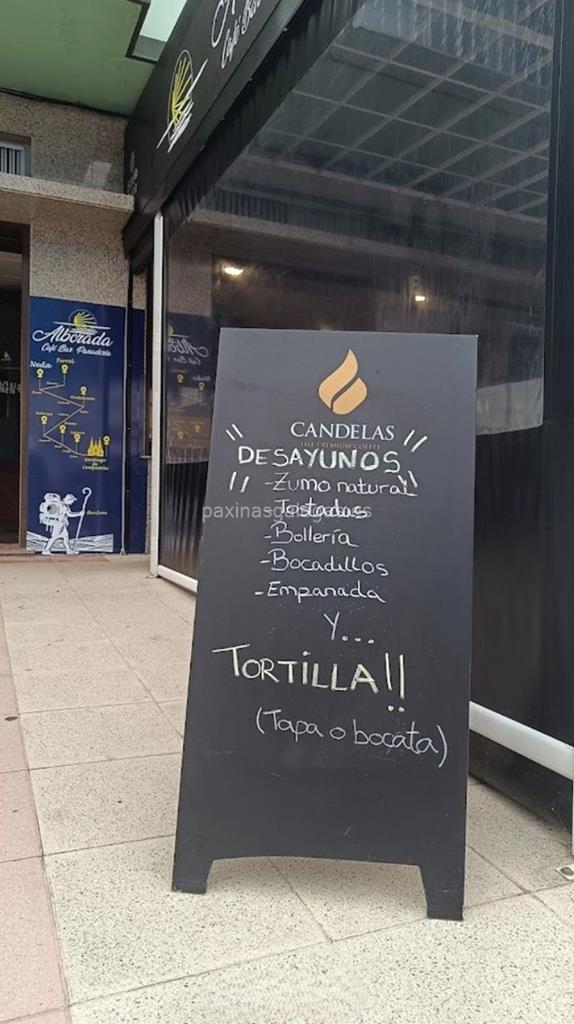 Café Bar
Alborada
Café Bar Panadería
Neda
Ferrol
Santiago de
Compostela
CANDELAS
THE PREMIUM COFFEE
DESAYUNOS
-Zumo natural
-Tostadas
-Bollería
-Bocadillos
-Empanada
Y...
TORTILLA!!
(Tapa o bocata)